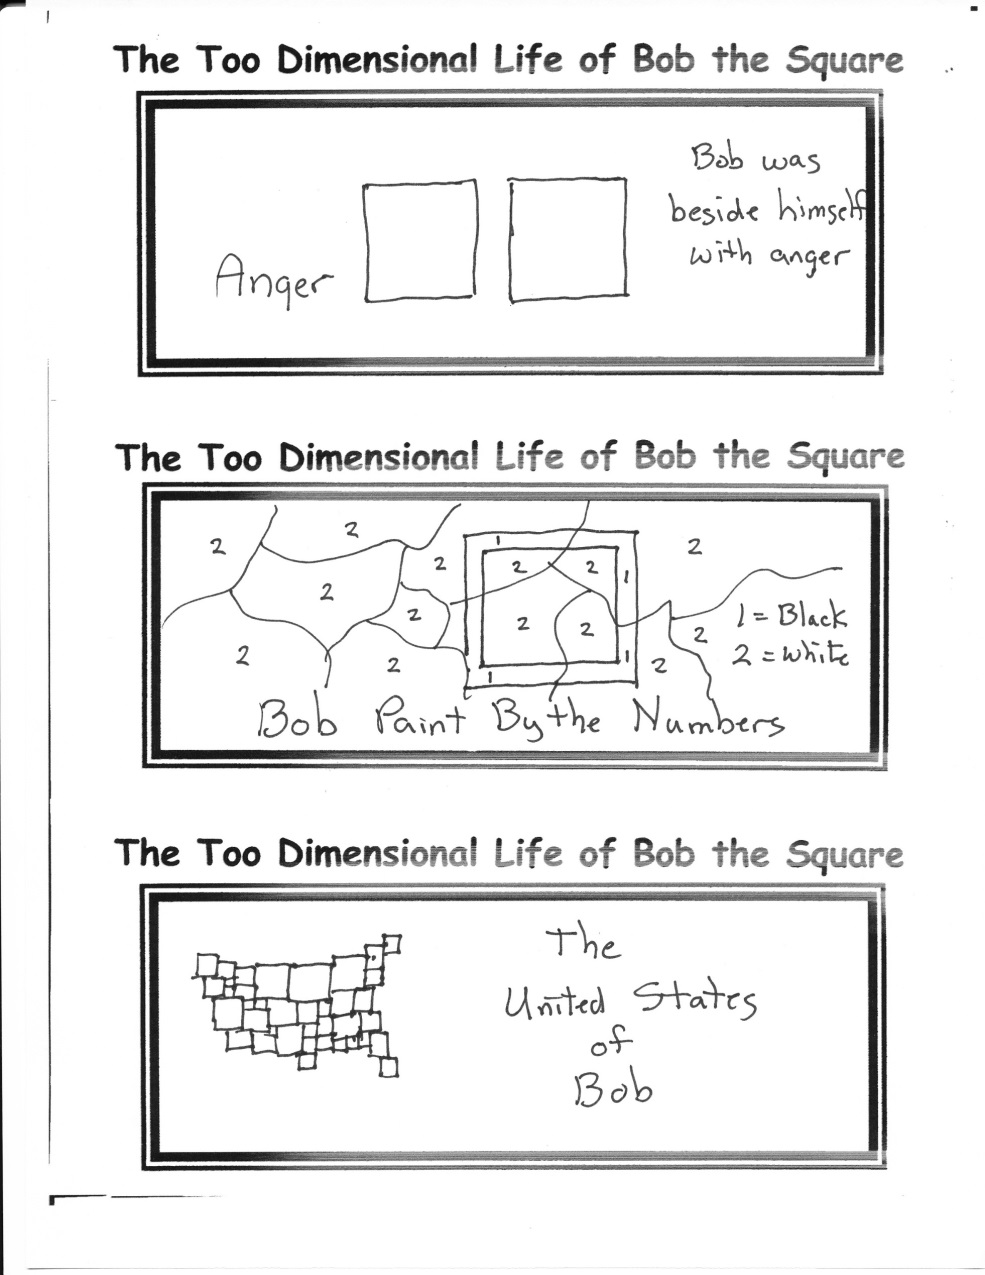 The Too Dimensional Life of Bob the Square
Bob was
beside himself
with anger
Anger
The Too Dimensional Life of Bob the Square
2
2
2
2
2
2
2
1
2
2
1
2
2
1
1
2
2
2
1 = Black
2 = white
Bob Paint By the Numbers
The Too Dimensional Life of Bob the Square
The
United States
of
Bob